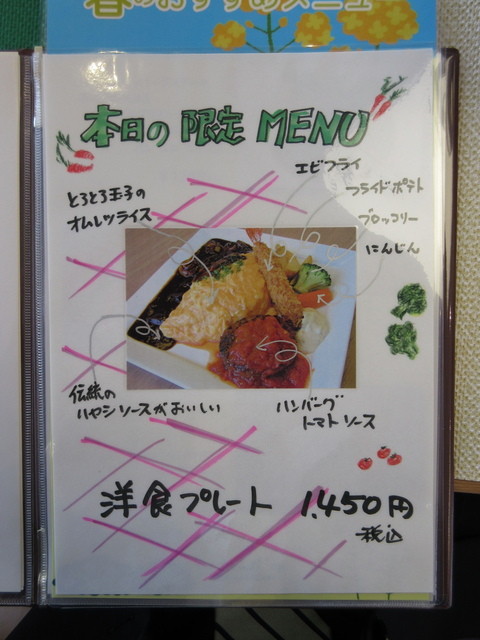 春のおすすめメニュー
本日の 限定 MENU
エビフライ
フライドポテト
とろとろ玉子の
オムレツライス
ブロッコリー
にんじん
伝統の
ハヤシソースがおいしい
ハンバーグ
トマトソース
洋食プレート 1,450円
税込